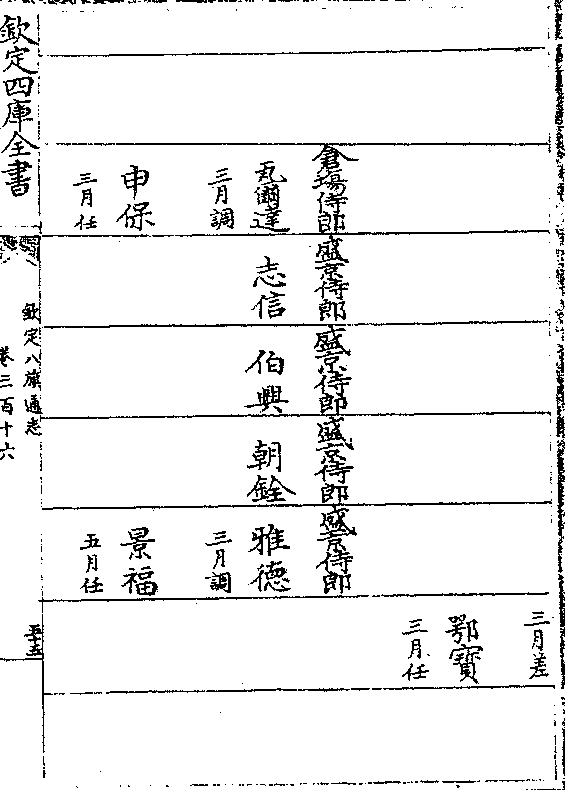 三月差
鄂寶
三月任
倉場侍郎
瓦爾達
三月調
申保
三月任
盛京侍郎
志信
盛京侍郎
伯興
盛京侍郎
朝銓
盛京侍郎
雅德
三月調
景福
五月任
欽定四庫全書
欽定八旗通志
卷三百十六